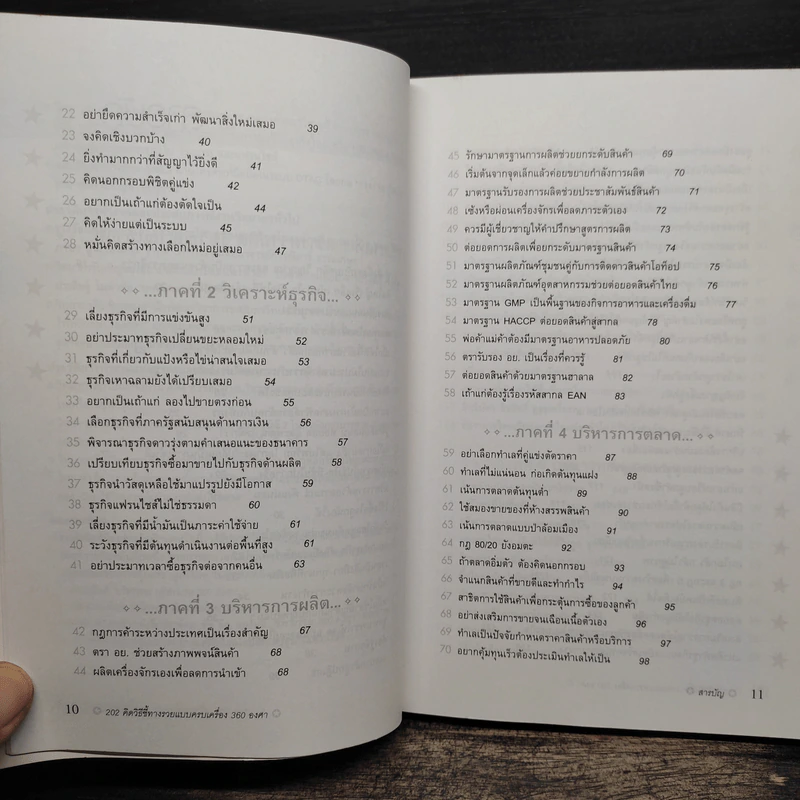 22 อย่ายึดความสำเร็จเก่า พัฒนาสิ่งใหม่เสมอ 39
23 จงคิดเชิงบวกบ้าง 40
24 ยิ่งทำมากกว่าที่สัญญาไว้ยิ่งดี 41
25 คิดนอกกรอบพิชิตคู่แข่ง 42
26 อยากเป็นเถ้าแก่ต้องตัดใจเป็น 44
27 คิดให้ง่ายแต่เป็นระบบ 45
28 หมั่นคิดสร้างทางเลือกใหม่อยู่เสมอ 47
...ภาคที่ 2 วิเคราะห์ธุรกิจ...
29 เลี่ยงธุรกิจที่มีการแข่งขันสูง 51
30 อย่าประมาทธุรกิจเปลี่ยนขยะหลอมใหม่ 52
31 ธุรกิจที่เกี่ยวกับแป้งหรือไข่น่าสนใจเสมอ 53
32 ธุรกิจเหาฉลามยังได้เปรียบเสมอ 54
33 อยากเป็นเถ้าแก่ ลองไปขายตรงก่อน 55
34 เลือกธุรกิจที่ภาครัฐสนับสนุนด้านการเงิน 56
35 พิจารณาธุรกิจดาวรุ่งตามคำเสนอแนะของธนาคาร 57
36 เปรียบเทียบธุรกิจซื้อมาขายไปกับธุรกิจด้านผลิต 58
37 ธุรกิจนำวัสดุเหลือใช้มาแปรรูปยังมีโอกาส 59
38 ธุรกิจแฟรนไชส์ไม่ใช่ธรรมดา 60
39 เลี่ยงธุรกิจที่มีน้ำมันเป็นภาระค่าใช้จ่าย 61
40 ระวังธุรกิจที่มีต้นทุนดำเนินงานต่อพื้นที่สูง 61
41 อย่าประมาทเวลาซื้อธุรกิจต่อจากคนอื่น 63
...ภาคที่ 3 บริหารการผลิต...
42 กฎการค้าระหว่างประเทศเป็นเรื่องสำคัญ 67
43 ตรา อย. ช่วยสร้างภาพพจน์สินค้า 68
44 ผลิตเครื่องจักรเองเพื่อลดการนำเข้า 68
10 202 คิดวิธีชี้ทางรวยแบบครบเครื่อง 360 องศา
45 รักษามาตรฐานการผลิตช่วยยกระดับสินค้า 69
46 เริ่มต้นจากจุดเล็กแล้วค่อยขยายกำลังการผลิต 70
47 มาตรฐานรับรองการผลิตช่วยประชาสัมพันธ์สินค้า 71
48 เซ้งหรือผ่อนเครื่องจักรเพื่อลดภาระตัวเอง 72
49 ควรมีผู้เชี่ยวชาญให้คำปรึกษาสูตรการผลิต 73
50 ต่อยอดการผลิตเพื่อยกระดับมาตรฐานสินค้า 74
51 มาตรฐานผลิตภัณฑ์ชุมชนคู่กับการติดดาวสินค้าโอท็อป 75
52 มาตรฐานผลิตภัณฑ์อุตสาหกรรมช่วยต่อยอดสินค้าไทย 76
53 มาตรฐาน GMP เป็นพื้นฐานของกิจการอาหารและเครื่องดื่ม 77
54 มาตรฐาน HACCP ต่อยอดสินค้าสู่สากล 78
55 พ่อค้าแม่ค้าต้องมีมาตรฐานอาหารปลอดภัย 80
56 ตรารับรอง อย. เป็นเรื่องที่ควรรู้ 81
57 ต่อยอดสินค้าด้วยมาตรฐานฮาลาล 82
58 เถ้าแก่ต้องรู้เรื่องรหัสสากล EAN 83
...ภาคที่ 4 บริหารการตลาด...
59 อย่าเลือกทำเลที่คู่แข่งตัดราคา 87
60 ทำเลที่ไม่แน่นอน ก่อเกิดต้นทุนแฝง 88
61 เน้นการตลาดต้นทุนต่ำ 89
62 ใช้สมองขายของที่ห้างสรรพสินค้า 90
63 เน้นการตลาดแบบป่าล้อมเมือง 91
64 กฎ 80/20 ยังอมตะ 92
65 ถ้าตลาดอิ่มตัว ต้องคิดนอกกรอบ 93
66 จำแนกสินค้าที่ขายดีและทำกำไร 94
67 สาธิตการใช้สินค้าเพื่อกระตุ้นการซื้อของลูกค้า 95
68 อย่าส่งเสริมการขายจนเฉือนเนื้อตัวเอง 96
69 ทำเลเป็นปัจจัยกำหนดราคาสินค้าหรือบริการ 97
70 อยากคุ้มทุนเร็วต้องประเมินทำเลให้เป็น 98
สารบัญ 11